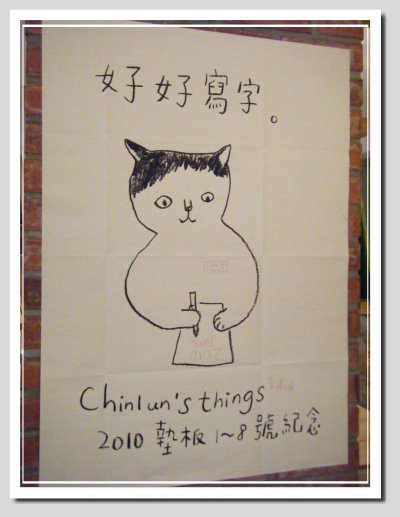 好好寫字。
2010
Chinlun's things
2010 墊板 1~8 號紀念